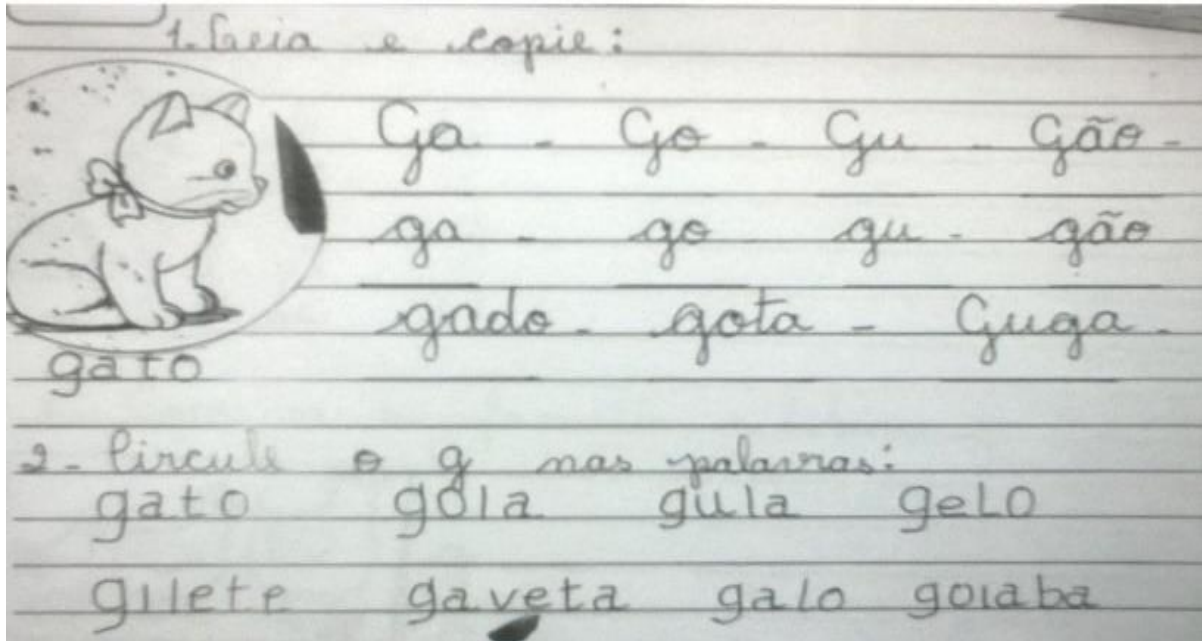 1. Leia e copie:
Ga - Go - Gu - Gão -
ga - go - gu - gão
gado - gota - Guga -
gato
2 - Circule o g nas palavras:
gato gola gula gelo
gilete gaveta galo goiaba